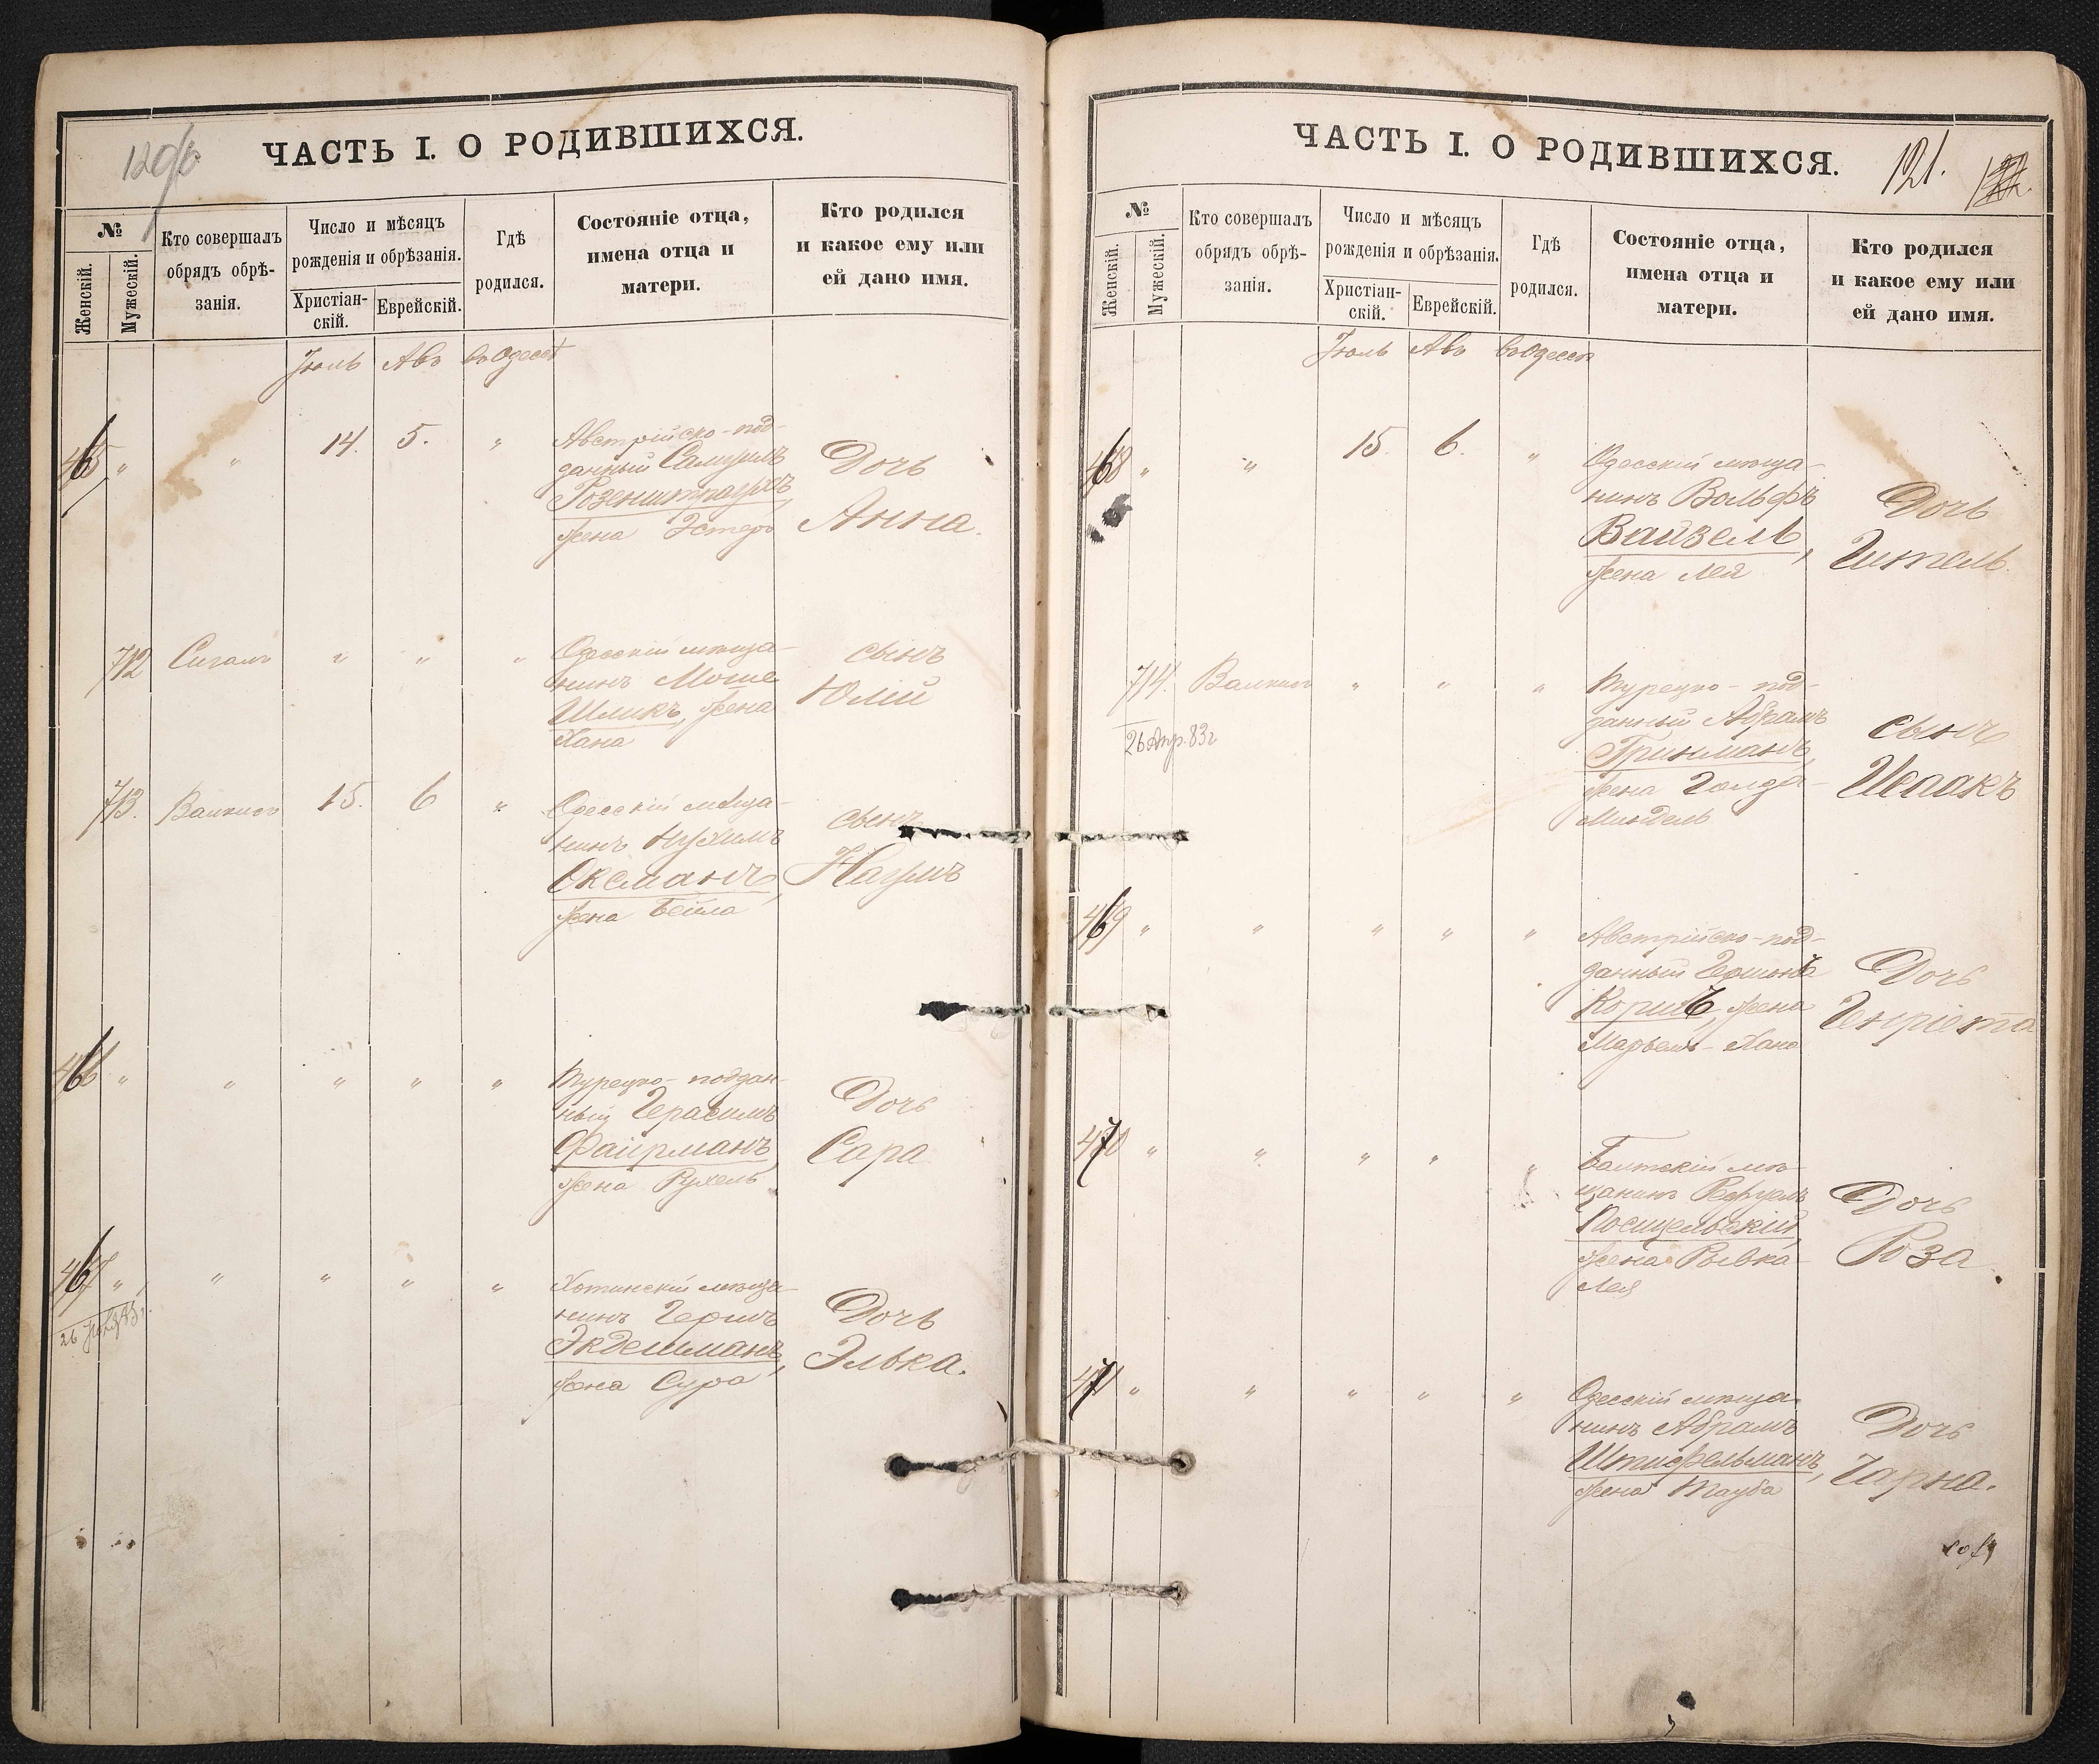 ЧАСТЬ I. О РОДИВШИХСЯ.
№
Женскій.
Мужескій.
Кто совершалъ
обрядъ обрѣ-
занія.
Число и мѣсяцъ
рожденія и обрѣзанія.
Христіан-
скій.
Еврейскій.
Гдѣ
родился.
Состояніе отца,
имена отца и
матери.
Кто родился
и какое ему или
ей дано имя.
Іюль Авъ въ Одессѣ
465 " " 14. 5. "
Австрійско-под-
данный Самуилъ
Розенштраухъ,
жена Эстеръ
Дочь
Анна.
712 Сигалъ " " "
Одесскій мѣща-
нинъ Моше
Шликъ, жена
Хана
сынъ
Юлій
713. 15. 6 "
Одесскій мѣща-
нинъ Нухимъ
Оксманъ,
жена Бейла
сынъ
Наумъ
466 " " " " "
Турецко-поддан-
ный Герасимъ
Файрманъ,
жена Рухель
Дочь
Сара
467 " " " " "
Хотинскій мѣща-
нинъ Гершъ
Экдешманъ,
жена Сура
Дочь
Элька.
ЧАСТЬ I. О РОДИВШИХСЯ.
121.
№
Женскій.
Мужескій.
Кто совершалъ
обрядъ обрѣ-
занія.
Число и мѣсяцъ
рожденія и обрѣзанія.
Христіан-
скій.
Еврейскій.
Гдѣ
родился.
Состояніе отца,
имена отца и
матери.
Кто родился
и какое ему или
ей дано имя.
Іюль Авъ въ Одессѣ
468 " " 15. 6. "
Одесскій мѣща-
нинъ Вольфъ
Вайзель,
жена Лея
Дочь
Гитель.
714. " " "
26 Апр. 83 г
Турецко-под-
данный Абрамъ
Гринманъ,
жена Голда-
Миндель
сынъ
Исаакъ
469 " " " " "
Австрійско-под-
данный
жена
Хана
Дочь
Генріета
470 " " " " "
Балтскій мѣ-
щанинъ
жена Рывка-
Лея
Дочь
Роза
471 " " " " "
Одесскій мѣща-
нинъ Абрамъ
Штифельманъ,
жена Тауба
Дочь
Чарна.